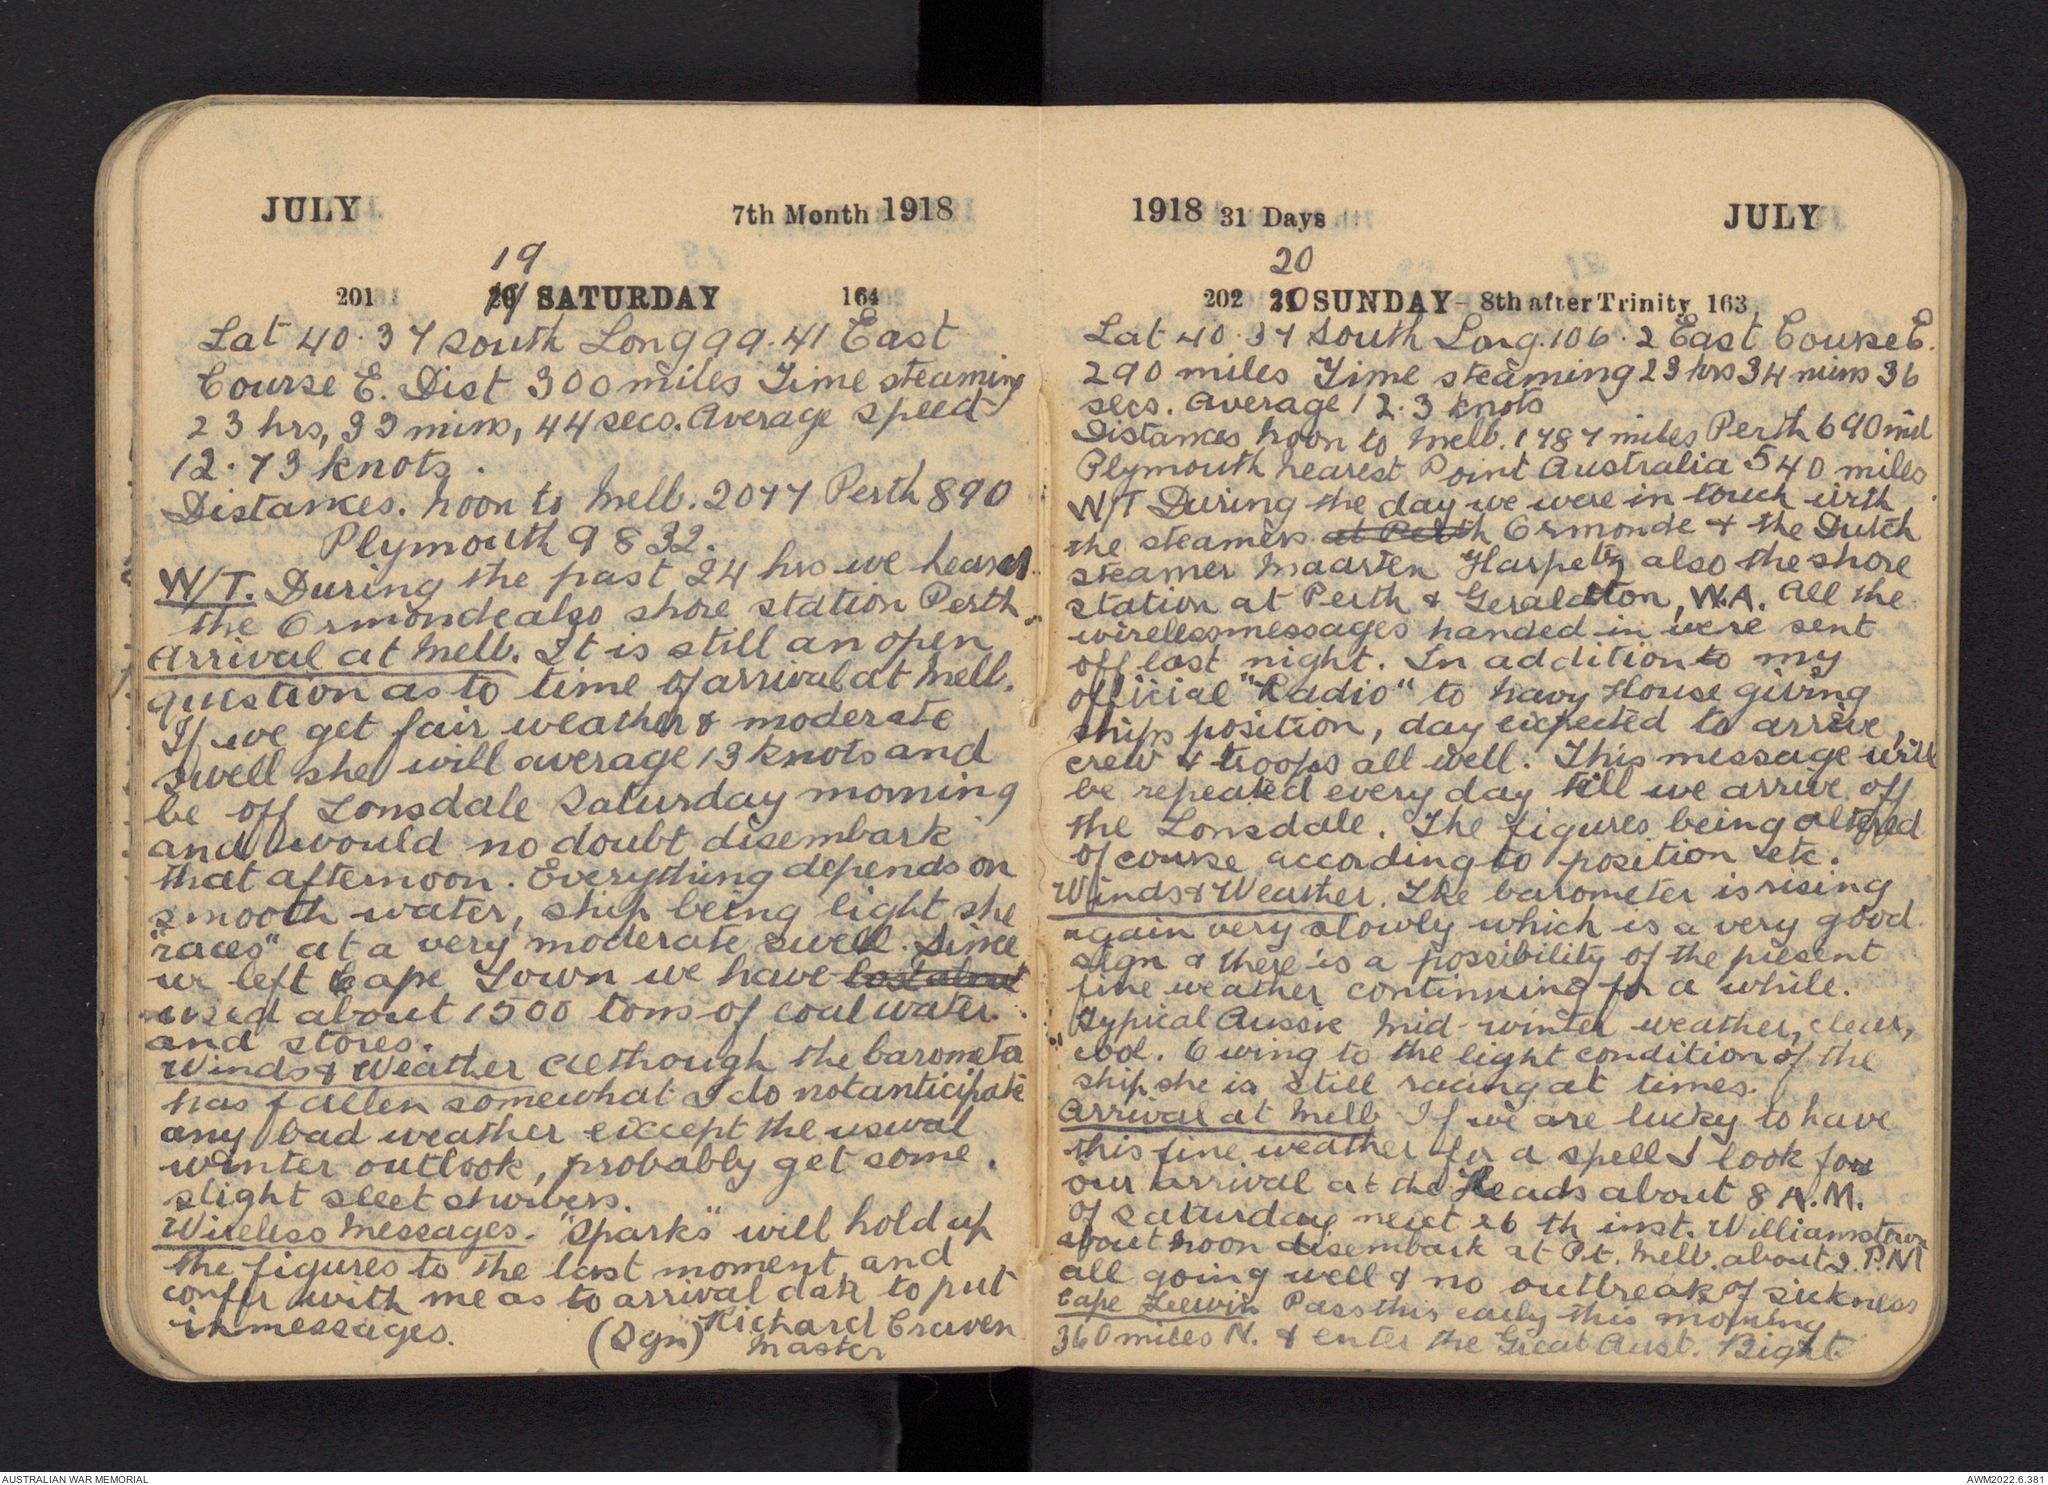 JULY 7th Month 1918
19
201 SATURDAY 164
Lat 40.37 South Long 99.41 East
Course E. Dist 300 miles Time steaming
23 hrs, 33 mins, 44 secs. Average speed
12.73 knots.
Distances. Noon to Melb. 2077 Perth 890
Plymouth 9832.
W/T. During the past 24 hrs we heard
the Ormonde also shore station Perth.
Arrival at Melb. It is still an open
question as to time of arrival at Melb.
If we get fair weather & moderate
swell she will average 13 knots and
be off Lonsdale Saturday morning
and would no doubt disembark
that afternoon. Everything depends on
smooth water, ship being light she
"races" at a very moderate swell. Since
we left Cape Town we have lost about
used about 1500 tons of coal water
and stores.
Winds & Weather Although the barometer
has fallen somewhat I do not anticipate
any bad weather except the usual
winter outlook, probably get some
slight sleet showers.
Wireless Messages. "Sparks" will hold up
the figures to the last moment, and
confer with me as to arrival date to put
in messages.
(Sgn) Richard Craven
Master
1918 31 Days JULY
20
202 SUNDAY - 8th after Trinity 163
Lat 40.37 South Long. 106.2 East Course E.
290 miles Time steaming 23 hrs 34 mins 36
secs. Average 12.3 knots
Distances Noon to Melb. 1787 miles Perth 690 mil
Plymouth nearest Point Australia 540 miles.
W/T During the day we were in touch with
the steamers at Perth Ormonde & the Dutch
steamer Maarten also the shore
station at Perth & Geraldton, W.A. All the
wireless messages handed in were sent
off last night. In addition to my
official "Radio" to Navy House giving
ships position, day expected to arrive,
crew & troops all well. This message will
be repeated every day till we arrive off
the Lonsdale. The figures being altered
of course according to position etc.
Winds & Weather. The barometer is rising
again very slowly which is a very good
sign & there is a possibility of the present
fine weather continuing for a while.
Typical Aussie mid-winter weather, clear,
cool. Owing to the light condition of the
ship she is still racing at times.
Arrival at Melb If we are lucky to have
this fine weather for a spell I look for
our arrival at the Heads about 8 A.M.
of Saturday next 26 th inst. Williamstown
about noon disembark at Pt. Melb. about 2. P.M
all going well & no outbreak of sickness
Cape Leewin Pass this early this morning
360 miles N. & enter the Great Aust. Bight.
AUSTRALIAN WAR MEMORIAL AWM2022.6.381